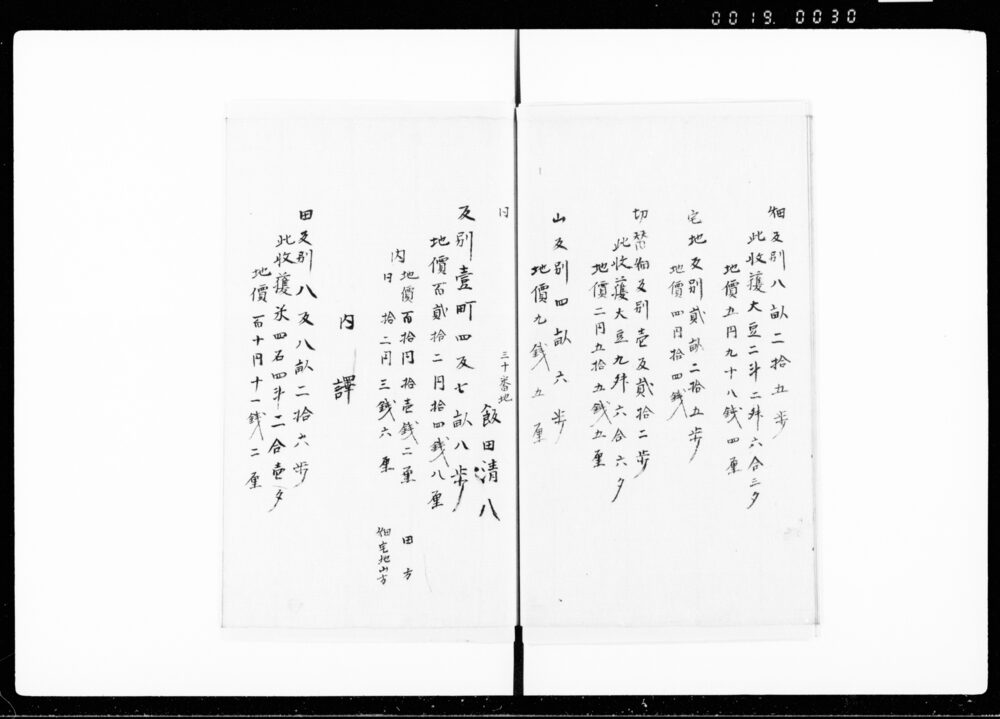 0019. 0030
畑反別八畝二拾五歩
此收獲大豆二斗二升六合三夕
地價五円九十八銭四厘
宅地反別貳畝二拾五歩
地價四円拾四銭
切替畑反別壱反貳拾二歩
此收獲大豆九升六合六夕
地價二円五拾五銭五厘
山反別四畝六歩
地價九銭五厘
日
三十番地
飯田清八
反別壹町四反七畝八歩
地價百貳拾二円拾四銭八厘
内地價百拾円拾壱銭二厘 田方
日拾二円三銭六厘 畑宅地山方
内譯
田反別八反八畝二拾六歩
此收獲米四石四斗二合壱夕
地價百十円十一銭二厘